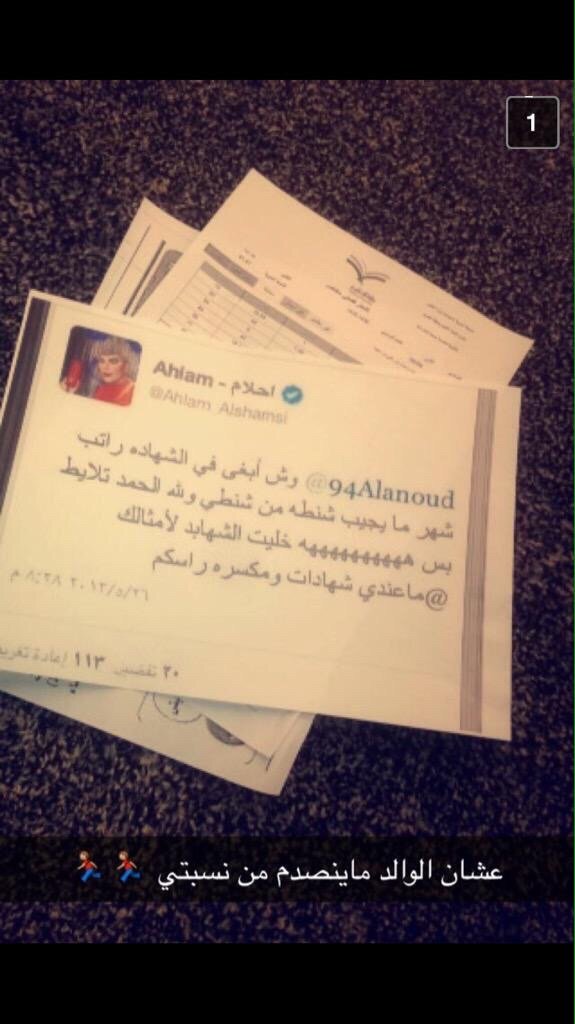 1
Ahlam - احلام
@Ahlam_Alshamsi
@94Alanoud وش أبغى في الشهاده راتب
شهر ما يجيب شنطه من شنطي ولله الحمد تلايط
بس هههههههههههه خليت الشهايد لأمثالك
@ماعندي شهادات ومكسره راسكم
٢٠١٢/٥/٢٦ ٨:٢٨ م
٢٠ تفضيل ١١٣ إعادة تغريد
عشان الوالد ماينصدم من نسبتي 🏃 🏃